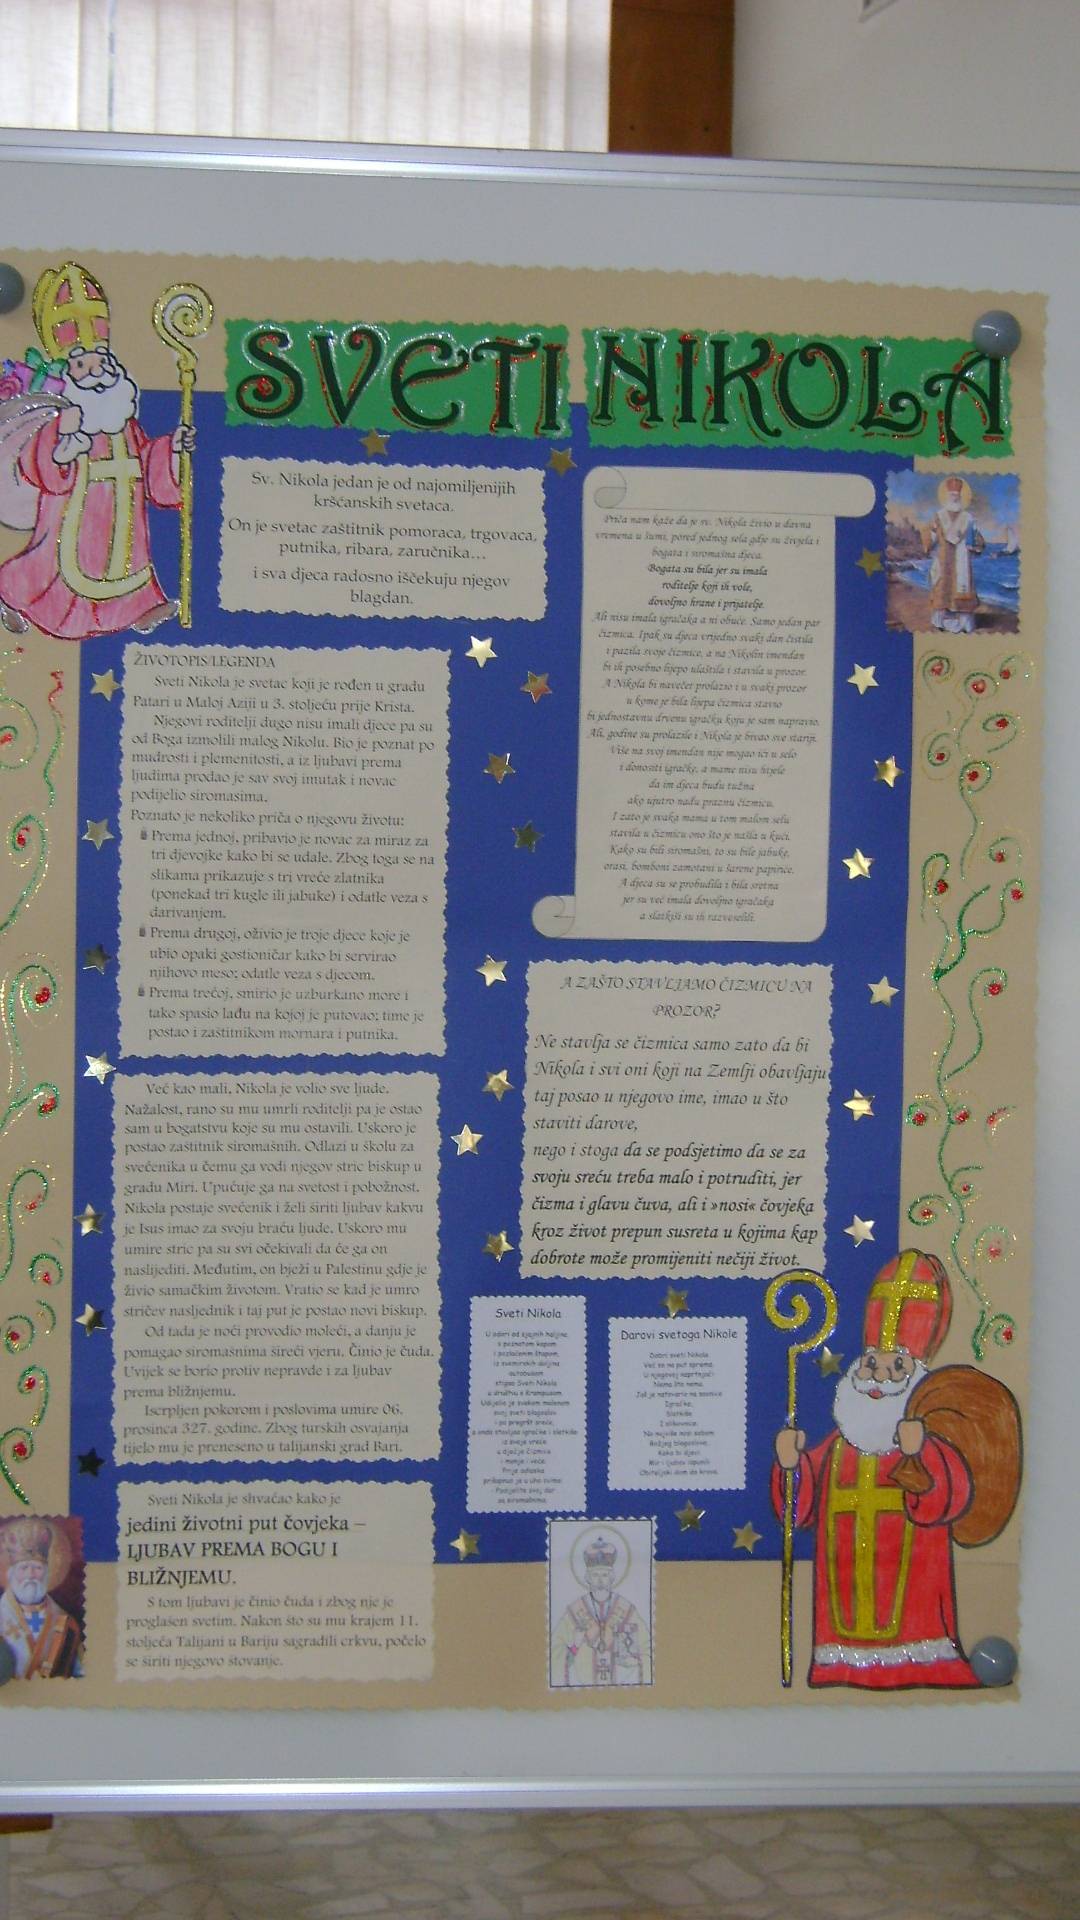 SVETI NIKOLA
Sv. Nikola jedan je od najomiljenijih
kršćanskih svetaca.
On je svetac zaštitnik pomoraca, trgovaca,
putnika, ribara, zaručnika...
i sva djeca radosno iščekuju njegov
blagdan.
ŽIVOTOPIS/LEGENDA
Sveti Nikola je svetac koji je rođen u gradu
Patari u Maloj Aziji u 3. stoljeću prije Krista.
Njegovi roditelji dugo nisu imali djece pa su
od Boga izmolili malog Nikolu. Bio je poznat po
mudrosti i plemenitosti, a iz ljubavi prema
ljudima prodao je sav svoj imutak i novac
podijelio siromasima.
Poznato je nekoliko priča o njegovu životu:
Prema jednoj, pribavio je novac za miraz za
tri djevojke kako bi se udale. Zbog toga se na
slikama prikazuje s tri vreće zlatnika
(ponekad tri kugle ili jabuke) i odatle veza s
darivanjem.
Prema drugoj, oživio je troje djece koje je
ubio opaki gostioničar kako bi servirao
njihovo meso; odatle veza s djecom.
Prema trećoj, smirio je uzburkano more i
tako spasio lađu na kojoj je putovao; time je
postao i zaštitnikom mornara i putnika.
Već kao mali, Nikola je volio sve ljude.
Nažalost, rano su mu umrli roditelji pa je ostao
sam u bogatstvu koje su mu ostavili. Uskoro je
postao zaštitnik siromašnih. Odlazi u školu za
svećenika u čemu ga vodi njegov stric biskup u
gradu Miri. Upućuje ga na svetost i pobožnost.
Nikola postaje svećenik i želi širiti ljubav kakvu
je Isus imao za svoju braću ljude. Uskoro mu
umire stric pa su svi očekivali da će ga on
naslijediti. Međutim, on bježi u Palestinu gdje je
živio samačkim životom. Vratio se kad je umro
stričev nasljednik i taj put je postao novi biskup.
Od tada je noći provodio moleći, a danju je
pomagao siromašnima šireći vjeru. Činio je čuda.
Uvijek se borio protiv nepravde i za ljubav
prema bližnjemu.
Iscrpljen pokorom i poslovima umire 06.
prosinca 327. godine. Zbog turskih osvajanja
tijelo mu je preneseno u talijanski grad Bari.
Sveti Nikola je shvaćao kako je
jedini životni put čovjeka –
LJUBAV PREMA BOGU I
BLIŽNJEMU.
S tom ljubavi je činio čuda i zbog nje je
proglašen svetim. Nakon što su mu krajem 11.
stoljeća Talijani u Bariju sagradili crkvu, počelo
se širiti njegovo štovanje.
Priča nam kaže da je sv. Nikola živio u davna
vremena u šumi, pored jednog sela gdje su živjela i
bogata i siromašna djeca.
Bogata su bila jer su imala
roditelje koji ih vole,
dovoljno hrane i prijatelje.
Ali nisu imala igračaka a ni obuće. Samo jedan par
čizmica. Ipak su djeca vrijedno svaki dan čistila
i pazila svoje čizmice, a na Nikolin imendan
bi ih posebno lijepo ulaštila i stavila u prozor.
A Nikola bi navečer prolazio i u svaki prozor
u kome je bila lijepa čizmica stavio
bi jednostavnu drvenu igračku koju je sam napravio.
Ali, godine su prolazile i Nikola je bivao sve stariji.
Više na svoj imendan nije mogao ići u selo
i donositi igračke, a mame nisu htjele
da im djeca budu tužna
ako ujutro nađu praznu čizmicu.
I zato je svaka mama u tom malom selu
stavila u čizmicu ono što je našla u kući.
Kako su bili siromašni, to su bile jabuke,
orasi, bomboni zamotani u šarene papiriće.
A djeca su se probudila i bila sretna
jer su već imala dovoljno igračaka
a slatkiši su ih razveselili.
A ZAŠTO STAVLJAMO ČIZMICU NA
PROZOR?
Ne stavlja se čizmica samo zato da bi
Nikola i svi oni koji na Zemlji obavljaju
taj posao u njegovo ime, imao u što
staviti darove,
nego i stoga da se podsjetimo da se za
svoju sreću treba malo i potruditi, jer
čizma i glavu čuva, ali i »nosi« čovjeka
kroz život prepun susreta u kojima kap
dobrote može promijeniti nečiji život.
Sveti Nikola
U odori od sjajnih haljina,
s poznatom kapom
i pozlaćenim štapom,
iz svemirskih daljina
autobusom
stigao Sveti Nikola
u društvu s Krampusom.
Udijelio je svakom malenom
svoj sveti blagoslov
i po pregršt sreće,
a onda stavljao igračke i slatkiše
iz svoje vreće
u dječje čizmice
- manje i veće.
Prije odlaska
prišapnuo je u uho svima:
- Podijelite svoj dar
sa siromašnima.
Darovi svetoga Nikole
Dobri sveti Nikola
Već se na put sprema.
U njegovoj naprtnjači
Nema što nema.
Još je natovario na saonice
Igračke,
Slatkiše
I slikovnice.
No najviše nosi sobom
Božjeg blagoslova,
Kako bi djeci
Mir i ljubav ispunili
Obiteljski dom do krova.